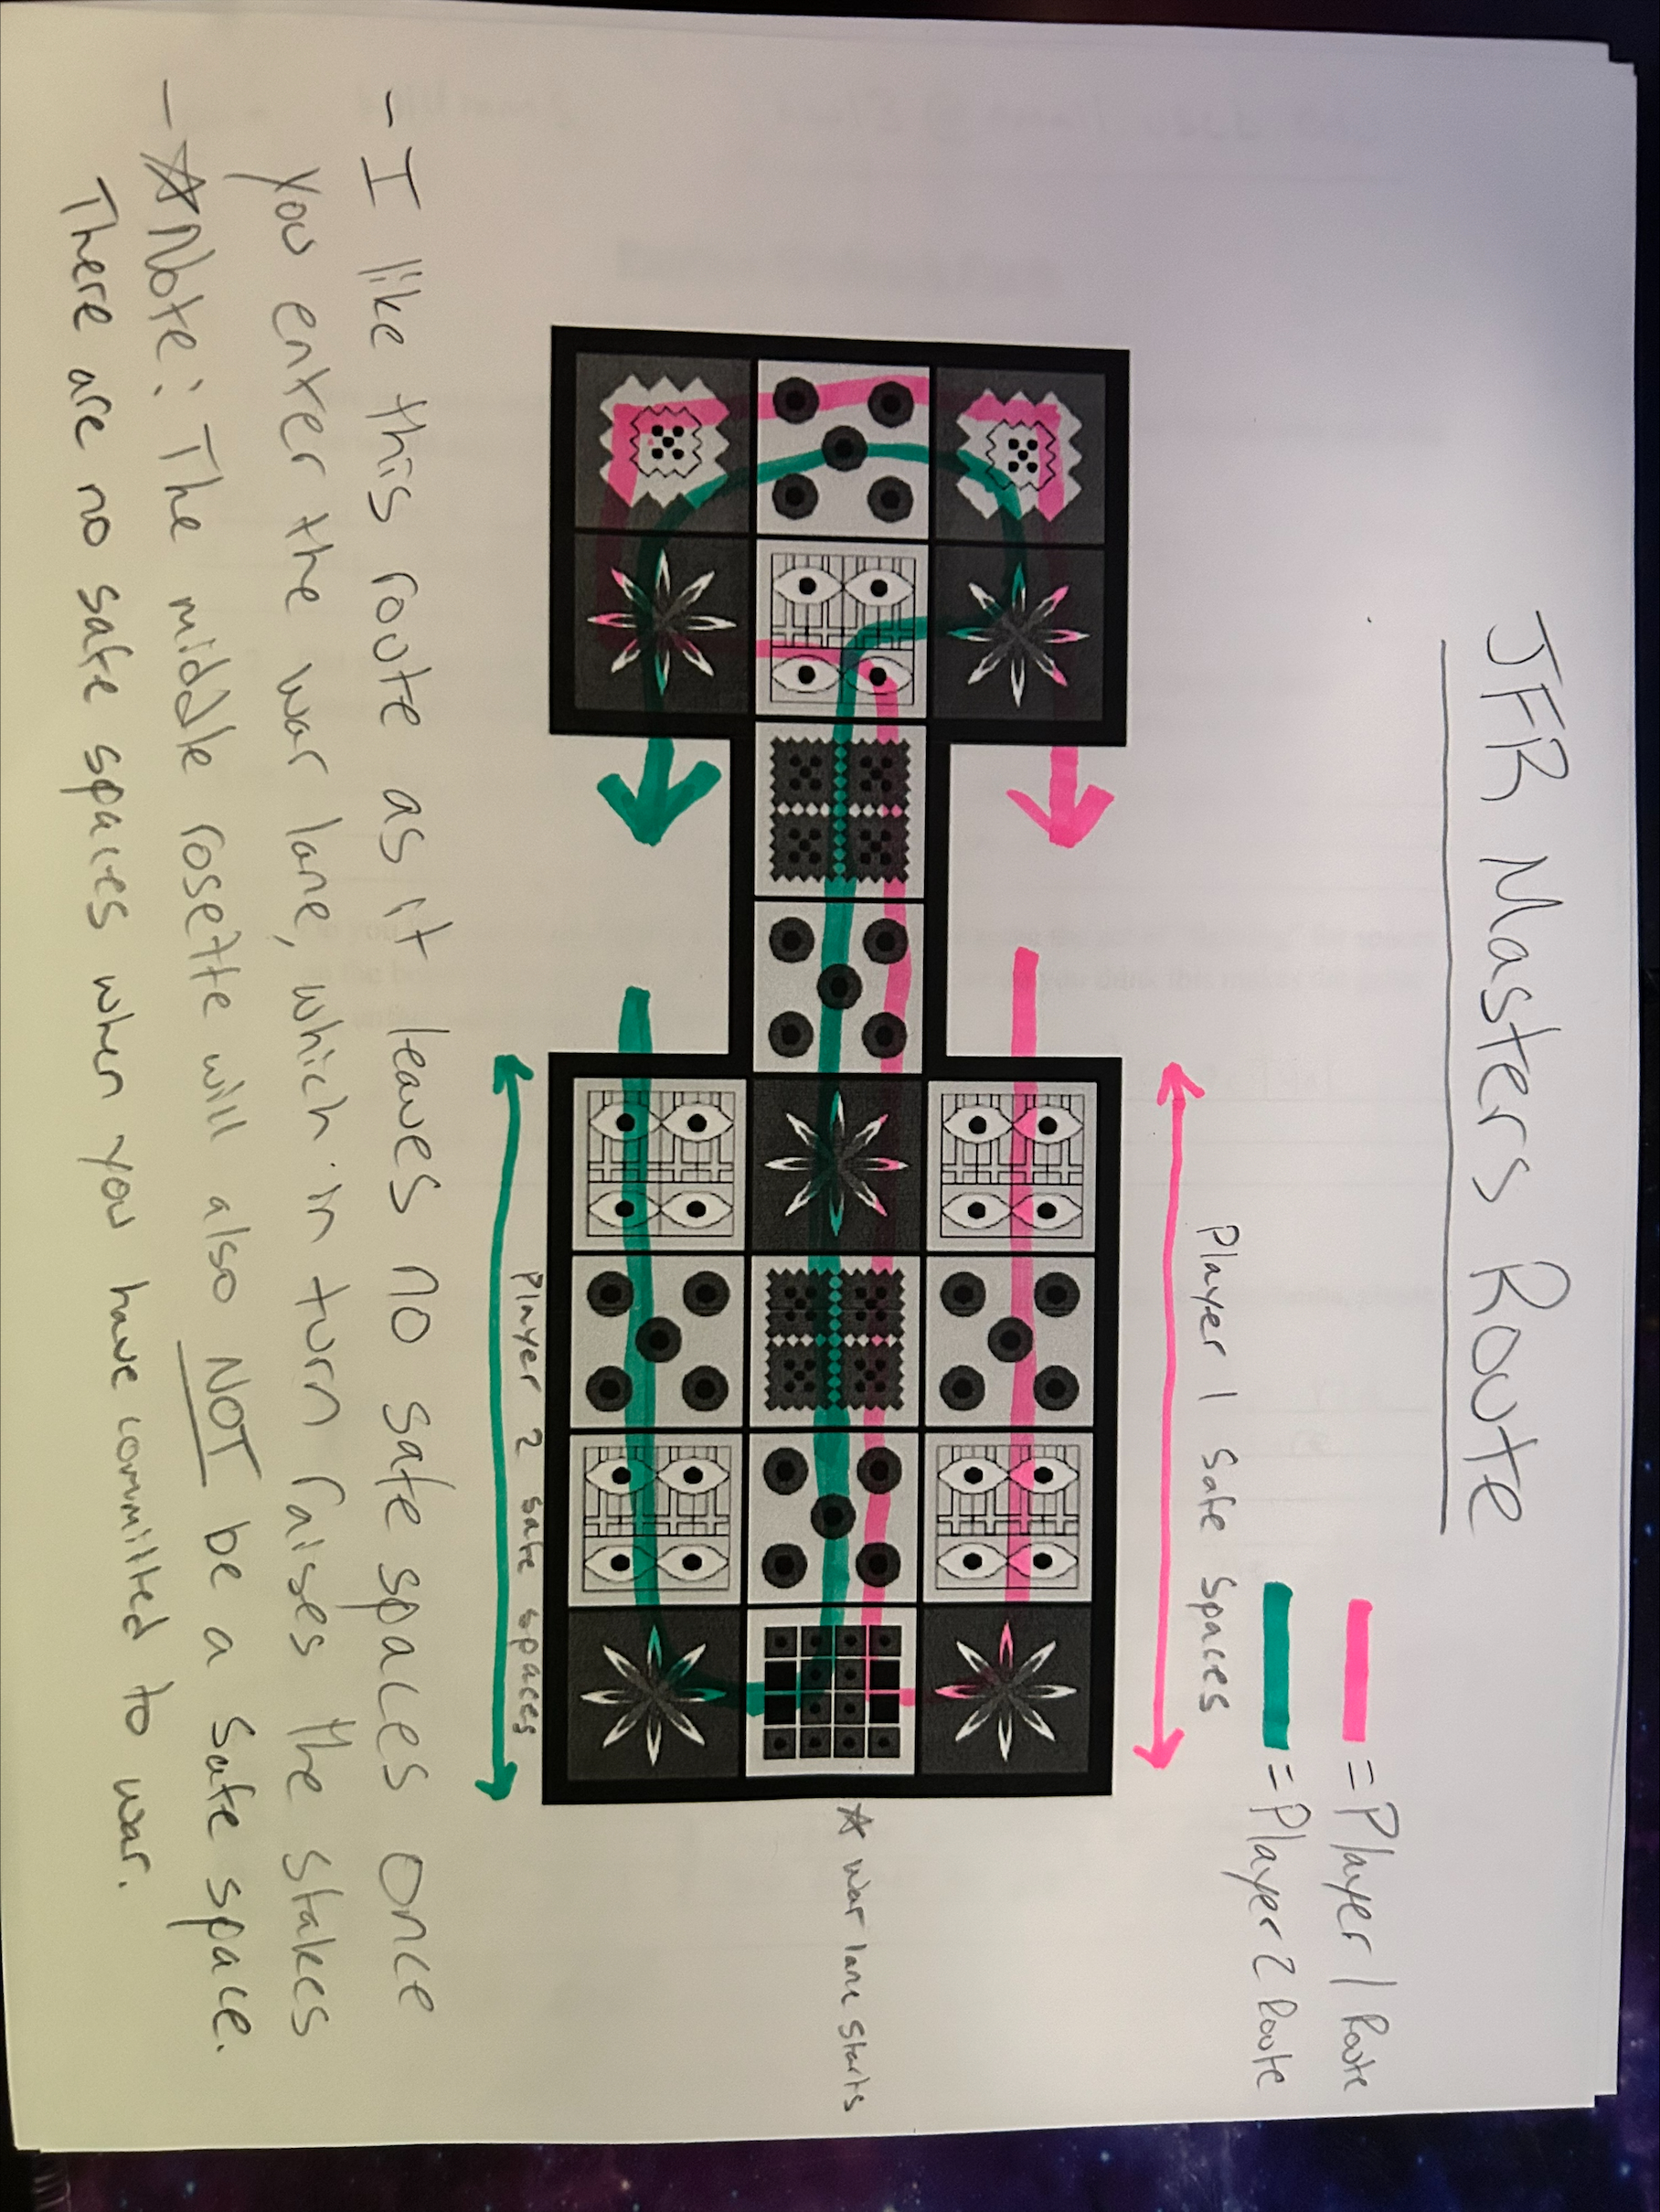 JFR Masters Route
= Player 1 Route
= Player 2 Route
Player 1 safe spaces
☆ war lane starts
Player 2 safe spaces
- I like this route as it leaves no safe spaces once
you enter the war lane, which in turn raises the stakes
- ☆ Note: The middle rosette will also NOT be a safe space.
There are no safe spaces when you have committed to war.